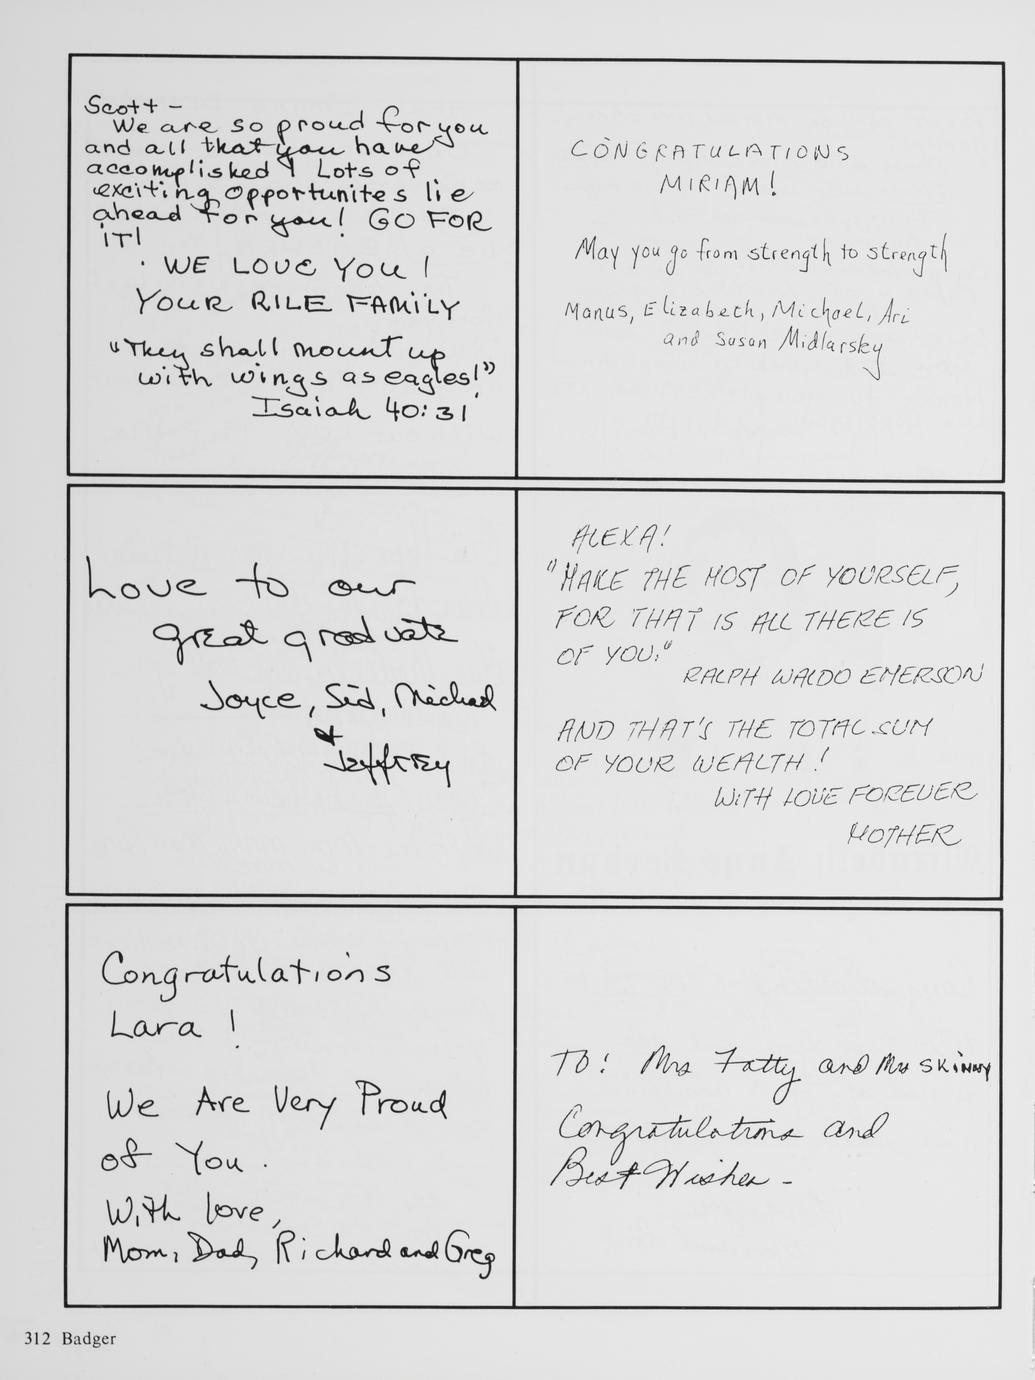 Scott -
We are so proud for you
and all that you have
accomplished! Lots of
exciting opportunites lie
ahead for you! GO FOR
IT!
WE LOVE YOU!
YOUR RILE FAMILY
"They shall mount up
with wings as eagles!"
Isaiah 40:31
CONGRATULATIONS
MIRIAM!
May you go from strength to strength
Manus, Elizabeth, Michael, Ari
and Susan Midlarsky
Love to our
great graduate
Joyce, Sid, Michael
&
Jeffrey
ALEXA!
"MAKE THE MOST OF YOURSELF,
FOR THAT IS ALL THERE IS
OF YOU."
RALPH WALDO EMERSON
AND THAT'S THE TOTAL SUM
OF YOUR WEALTH!
WITH LOVE FOREVER
MOTHER
Congratulations
Lara!
We Are Very Proud
of You.
With love,
Mom, Dad, Richard and Greg
TO: Mrs Fatty and Mrs SKINNY
Congratulations and
Best Wishes -
312 Badger